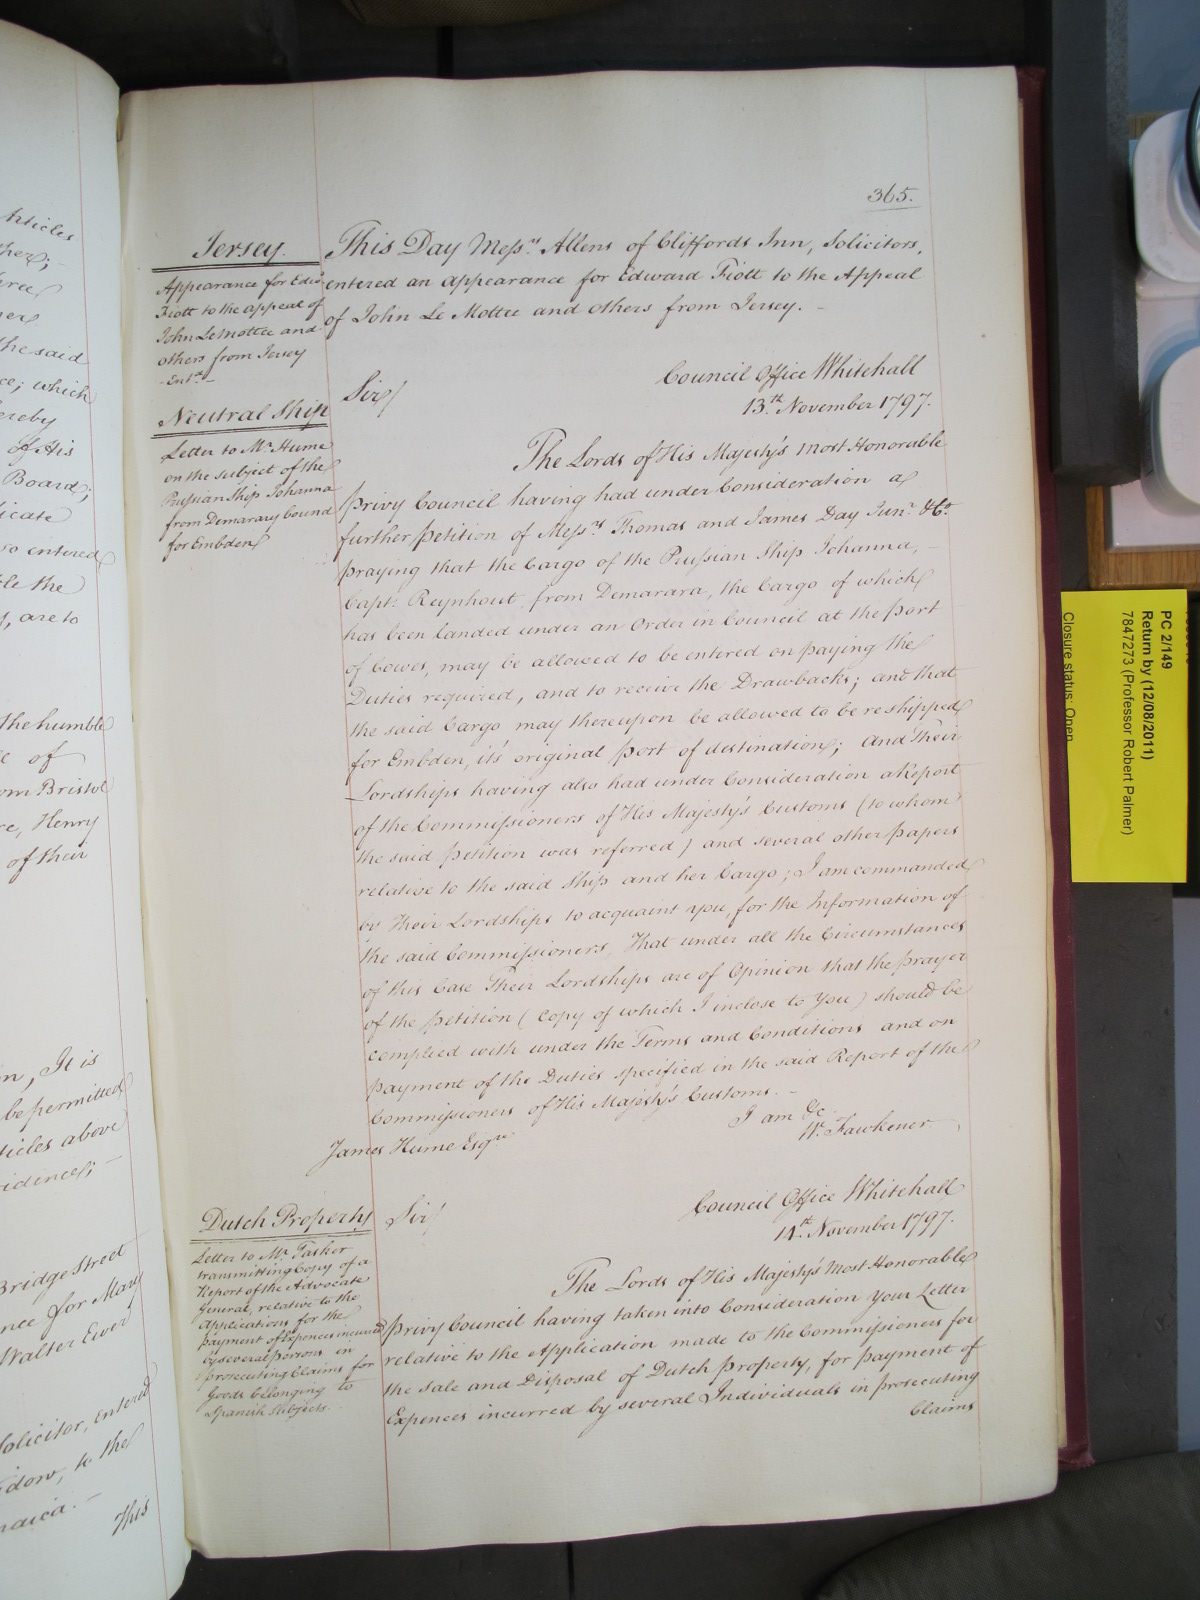 Articles
three
the said
which
hereby
of His
Board;
so entered
are to
the humble
of
from Bristol
Henry
of their
It is
be permitted
Articles above
Bridge Street
for Mary
Walter Ewer
Solicitor, entered
to the
This
365.
Jersey.
Appearance for Edwd
Fiott to the appeal of
John Le Mottee and
others from Jersey
Entd
This Day Messrs Allens of Cliffords Inn, Solicitors,
entered an appearance for Edward Fiott to the Appeal
of John Le Mottee and others from Jersey. -
Council Office Whitehall
13th November 1797.
Sir/
Neutral Ship
Letter to Mr Hume
on the subject of the
Prussian Ship Johanna
from Demarary bound
for Embden
The Lords of His Majesty's most Honorable
Privy Council having had under Consideration a
further Petition of Messrs Thomas and James Day Junr & Co.
praying that the Cargo of the Prussian Ship Johanna, -
Capt: Reynhout from Demarara, the Cargo of which
has been landed under an Order in Council at the Port
of Cowes, may be allowed to be entered on paying the
Duties required, and to receive the Drawbacks; and that
the said Cargo may thereupon be allowed to be reshipped
for Embden, it's original Port of destination; And Their
Lordships having also had under Consideration a Report
of the Commissioners of His Majesty's Customs (to whom
the said Petition was referred) and several other papers
relative to the said Ship and her Cargo; I am commanded
by Their Lordships to acquaint you, for the Information of
the said Commissioners, That under all the Circumstances
of this Case Their Lordships are of Opinion that the prayer
of the Petition (Copy of which I inclose to You) should be
complied with under the Terms and Conditions and on
payment of the Duties specified in the said Report of the
Commissioners of His Majesty's Customs. -
I am &c
W. Fawkener
James Hume Esqre
Council Office Whitehall
14th November 1797.
Sir/
Dutch Property
Letter to Mr. Tasker
transmitting Copy of a
Report of the Advocate
General, relative to the
applications for the
payment of Expences incurred
by several persons in
prosecuting Claims for
Goods belonging to
Spanish Subjects.
The Lords of His Majesty's most Honorable
Privy Council having taken into Consideration Your Letter
relative to the Application made to the Commissioners for
the Sale and Disposal of Dutch Property, for payment of
Expences incurred by several Individuals in prosecuting
Claims
PC 2/149
Return by (12/08/2011)
7847273 (Professor Robert Palmer)
Closure status: Open